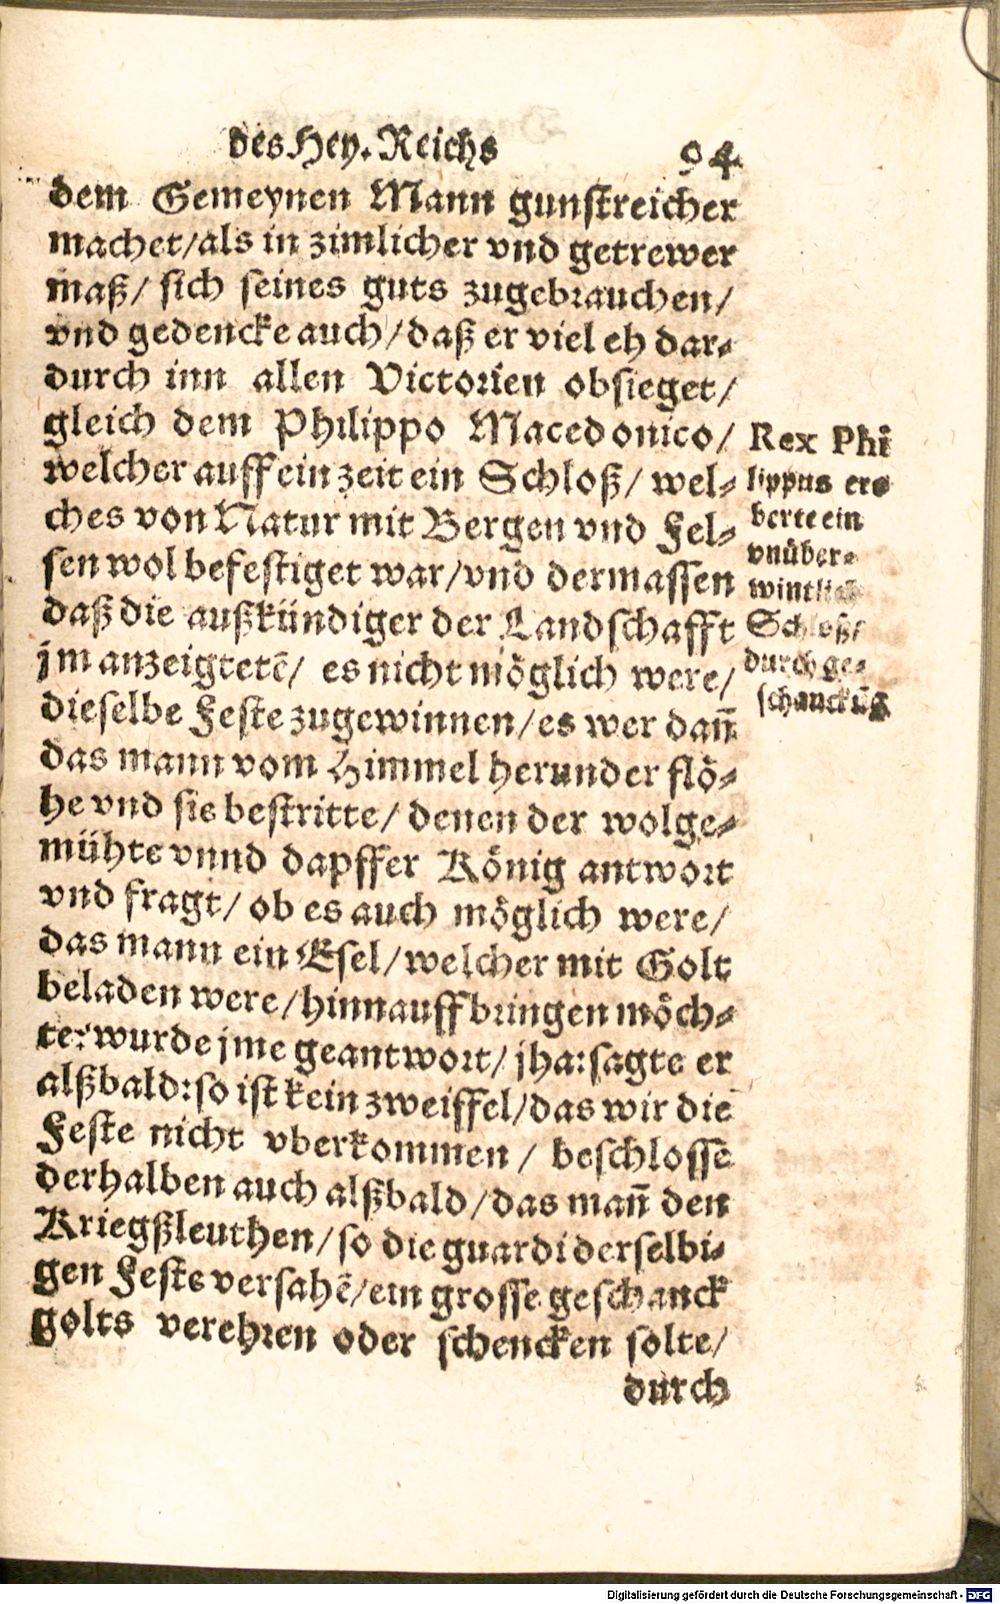 des Hey. Reichs 94
dem Gemeynen Mann gunstreicher
machet/als in zimlicher vnd getrewer
maß/ sich seines guts zugebrauchen/
vnd gedencke auch/daß er viel eh dar⸗
durch inn allen Victorien obsieget/
gleich dem Philippo Macedonico/
welcher auff ein zeit ein Schloß/ wel⸗
ches von Natur mit Bergen vnd Fel⸗
sen wol befestiget war/vnd dermassen
daß die außkündiger der Landschafft
jm anzeigtetē/ es nicht möglich were/
dieselbe Feste zugewinnen/es wer dañ
das mann vom Himmel herunder flö⸗
he vnd sie bestritte/ denen der wolge⸗
mühte vnnd dapffer König antwort
vnd fragt/ ob es auch möglich were/
das mann ein Esel/welcher mit Golt
beladen were/hinnauff bringen möch⸗
te: wurde jme geantwort/ jha: sagte er
alßbald: so ist kein zweiffel/das wir die
Feste nicht vberkommen / beschlosse
derhalben auch alßbald/das mañ den
Kriegßleuthen/so die guardi derselbi⸗
gen Feste versahē/ein grosse geschanck
golts verehren oder schencken solte/
durch
Rex Phi
lippus ero
berte ein
vnüber⸗
wintlich
Schloß/
durch ge⸗
schanckūg
Digitalisierung gefördert durch die Deutsche Forschungsgemeinschaft - DFG